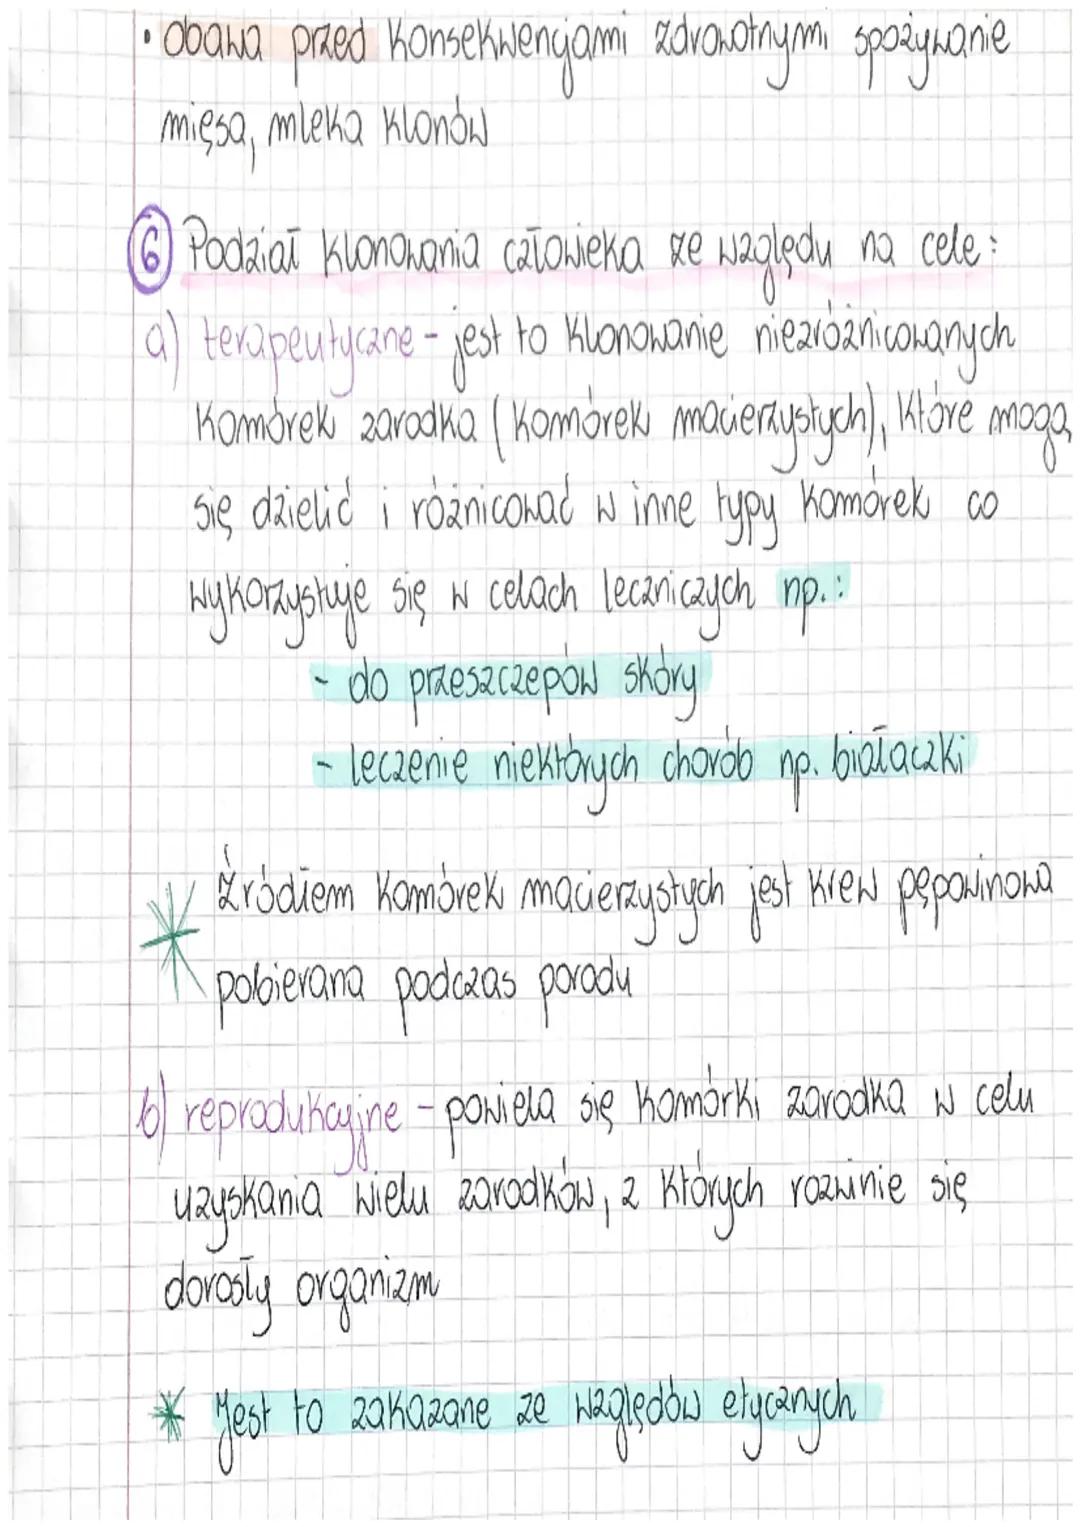 • obawa przed konsekwencjami zdrowotnymi spożywanie
mięsa, mleka klonów
6 Podział klonowania człowieka ze względu na cele:
a) terapeutyczne - jest to klonowanie niezróżnicowanych
komórek zarodka (komórek macierzystych), które mogą
się dzielić i różnicować w inne typy komórek co
wykorzystuje się w celach leczniczych np.:
- do przeszczepów skóry
- leczenie niektórych chorób np. białaczki
* Źródłem komórek macierzystych jest krew pępowinowa
pobierana podczas porodu
b) reprodukcyjne - powiela się komórki zarodka w celu
uzyskania wielu zarodków, z których rozwinie się
dorosły organizm
* Jest to zakazane ze względów etycznych